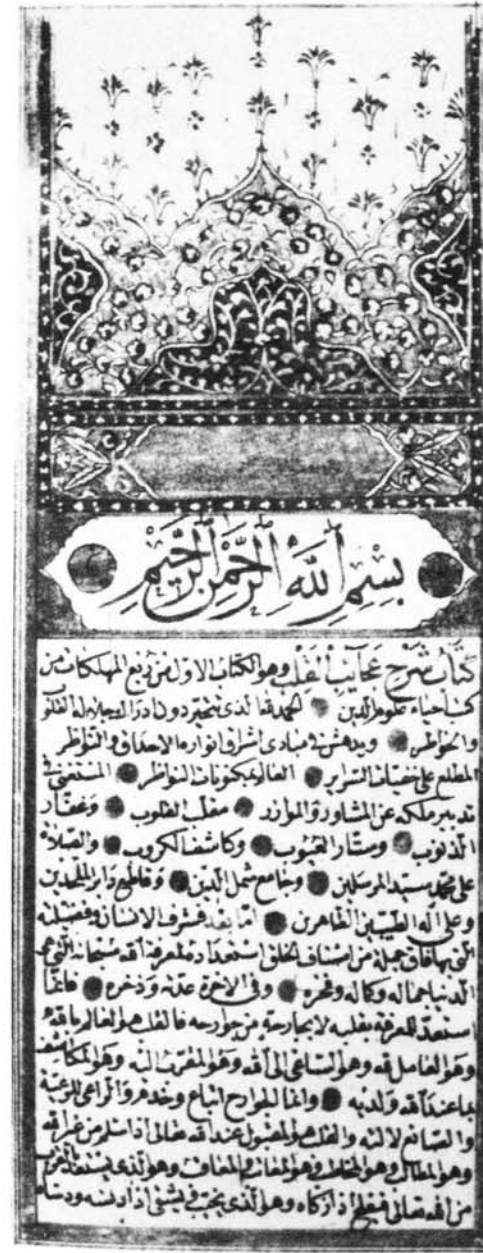 بِسْمِ ٱللَّهِ ٱلرَّحْمَٰنِ ٱلرَّحِيمِ
كتاب شرح عجايب القلب وهو الكتاب الاول من ربع المهلكات من
كتب احياء علوم الدين الحمد لله الذى تتحير دون ادراك جلاله القلوب
والخواطر وتدهش فى مبادى اشراق انواره الاحداق والنواظر
المطلع على خفيات السراير العالم بمكنونات الضمائر المستغنى فى
تدبير ملكه عن المشاور والموازر مقلب القلوب وغفار
الذنوب وستار العيوب وكاشف الكروب والصلاة
على محمد سيد المرسلين وجامع شمل الدين وقاطع دابر الملحدين
وعلى آله الطيبين الطاهرين اما بعد فشرف الانسان وفضيلته
التى بها فاق جملة من اصناف الخلق استعداده لمعرفة الله سبحانه التى هى
فى الدنيا جماله وكماله وفخره وفى الاخرة عدته وذخره فانما
استعد للمعرفة بقلبه لا بجارحة من جوارحه فالقلب هو العالم بالله
وهو العامل لله وهو الساعى الى الله وهو المتقرب اليه وهو المكاشف
بما عند الله ولديه وانما الجوارح اتباع وخدم
والقلب هو المقبول عند الله تعالى اذا سلم من غير الله
وهو المطالب وهو المخاطب وهو المعاتب والمعاقب وهو الذى يسعد بالقرب
من الله تعالى فيفلح اذا زكاه وهو الذى يخيب ويشقى اذا دنسه ودساه